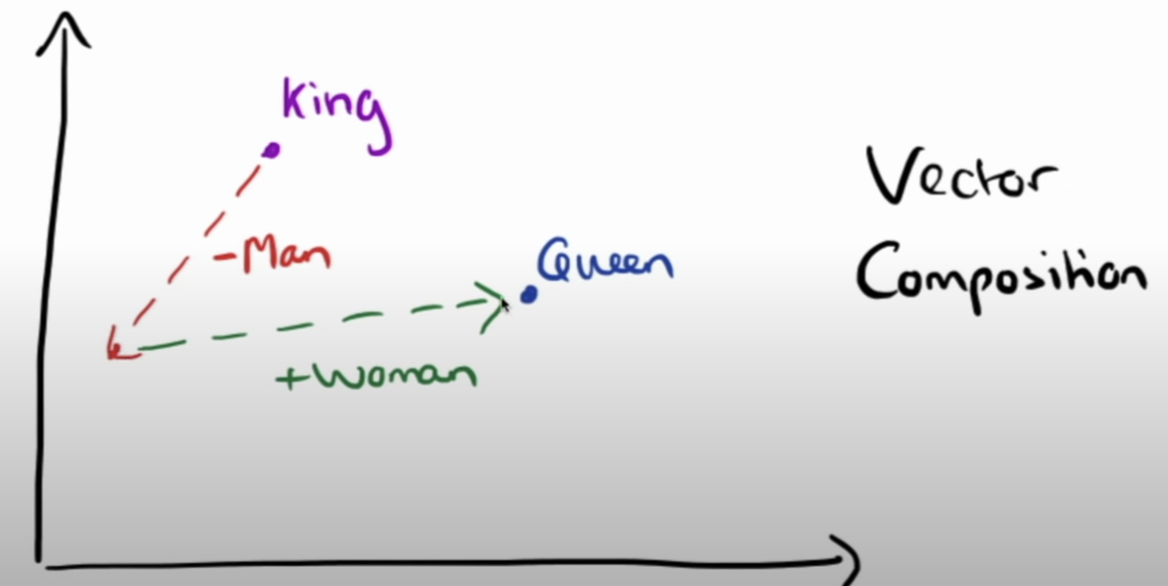 King
-Man
Queen
+woman
Vector
Composition